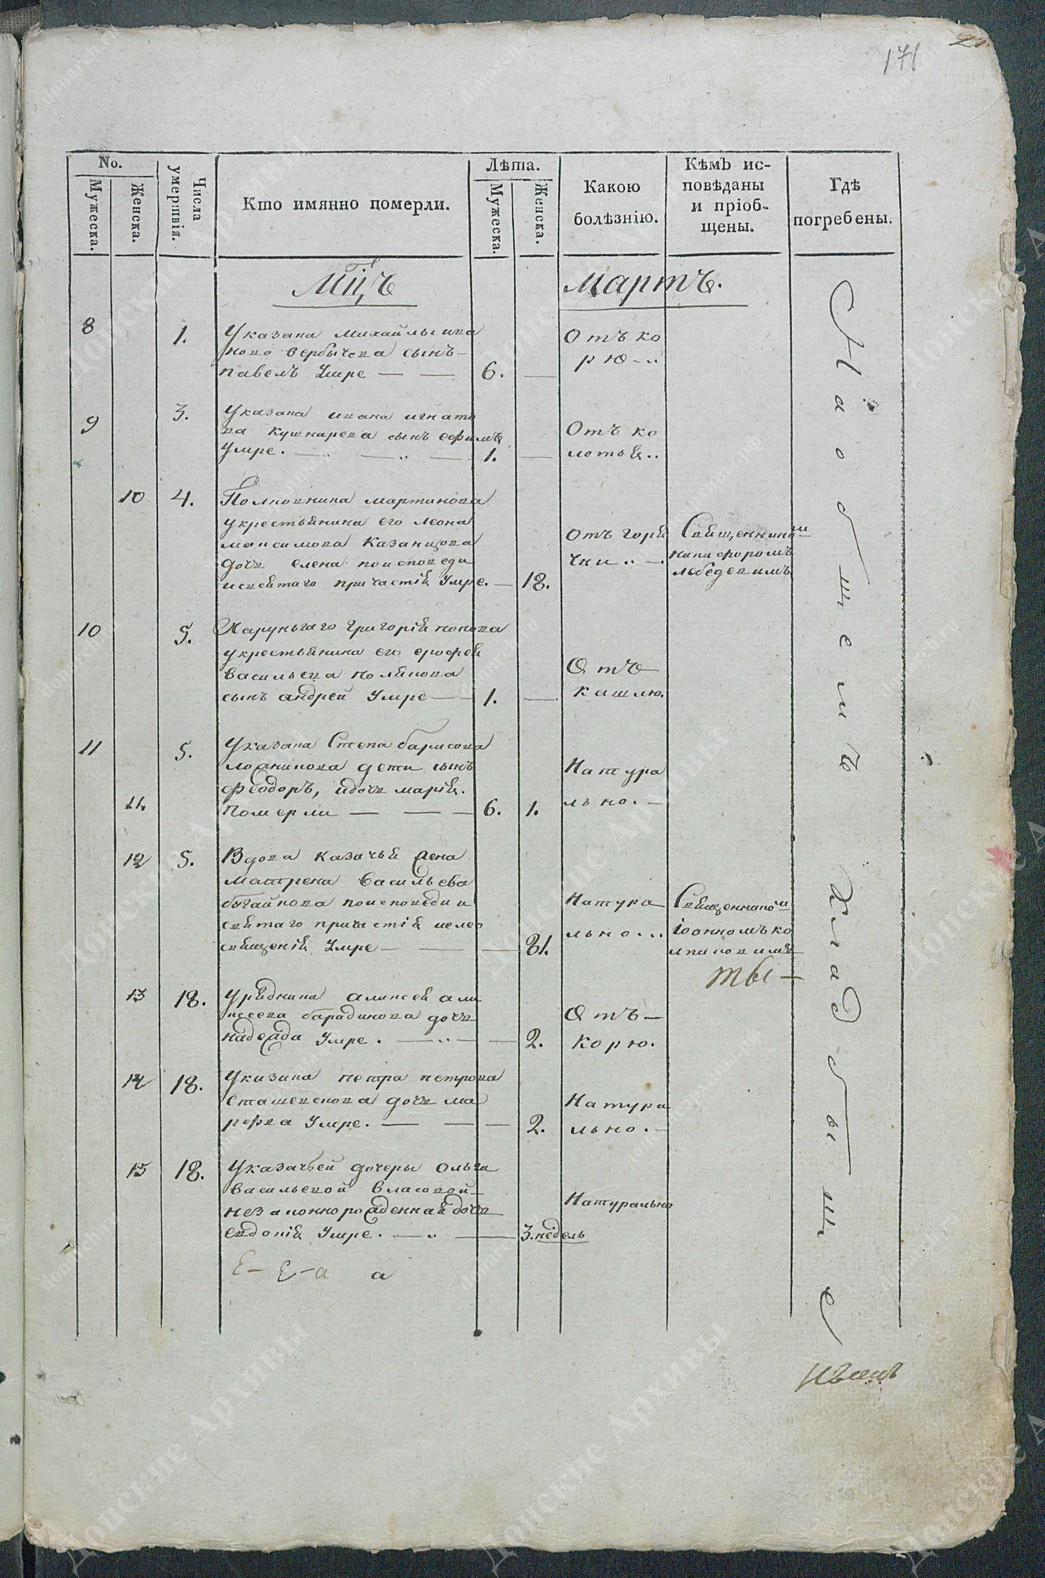 171
No.
Мужеска.
Женска.
Числа умертвія.
Кто имянно померли.
Лѣта.
Мужеска.
Женска.
Какою болѣзнію.
Кѣмъ исповѣданы и пріобщены.
Гдѣ погребены.
Мцъ Мартъ.
8 1. Указака михайлы ива
нова вербичева сынъ
павелъ Умре — — 6. —
Отъ ко
рю
9 3. Указака ивана игнато
ва кушнарева сынъ ефимъ
Умре. — — 1. —
Отъ ко
лотья
10 4. Полковника мартинова
укрестьянина его леона
максимова казанцова
дочь елена поисповеди
исвятаго причастія Умре. — 18.
Отъ горя
чки
Священнико
никифоромъ
лебедевимъ
10 5. Харунжаго григорія попова
укрестьянина его ерофея
васильева полякова
сынъ андрей Умре — 1. —
Отъ
кашлю
11 5. Указака Степа барисова
дети сынъ
феодоръ, идочь марія.
11. померли — — 6. 1.
Натура
льно. —
12 5. Вдова казачья жена
матрена васильева
бугайкова поисповеди и
святаго причастія иелео
священія Умре — — 81.
Натура
льно
Священнико
іоанномъ ко
13 18. Урядника алексея але
ксеева барадинова дочь
надежда Умре. — 2.
Отъ —
корю.
14 18. Указака петра петрова
Сташенкова дочь ма
рефа Умре. — — 2.
Натура
льно. —
15 18. Указачьей дочеры Ольги
васильевой власовой
незаконнорожденная дочь
евдокія Умре. — 3. недель
Натурально
На общемъ кладбыще